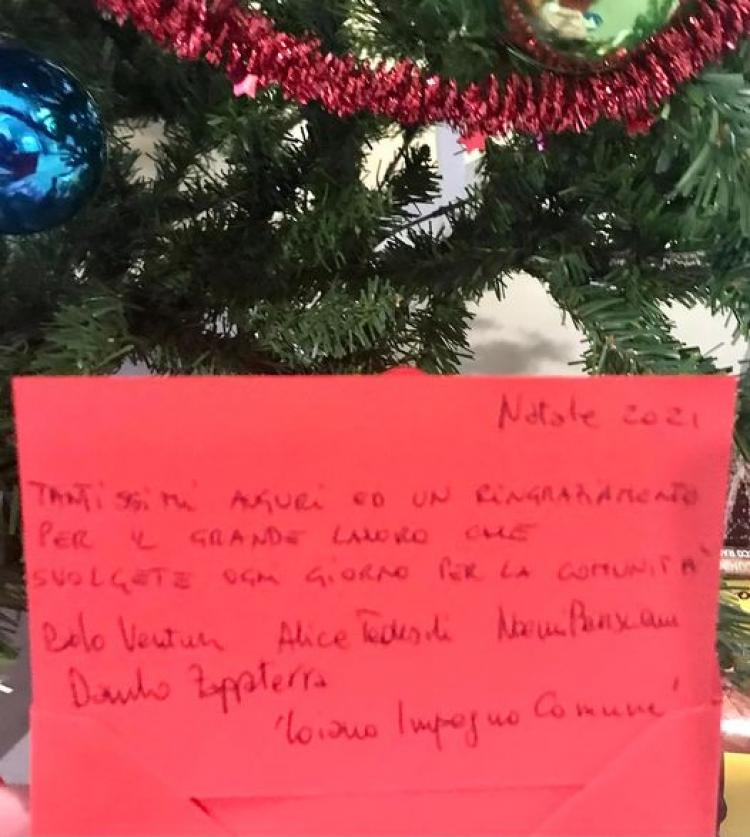 Natale 2021
TANTISSIMI AUGURI ED UN RINGRAZIAMENTO
PER IL GRANDE LAVORO CHE
SVOLGETE OGNI GIORNO PER LA COMUNITA'
Alice Tedeschi
Danilo Zappaterra
'Loiano Impegno Comune'